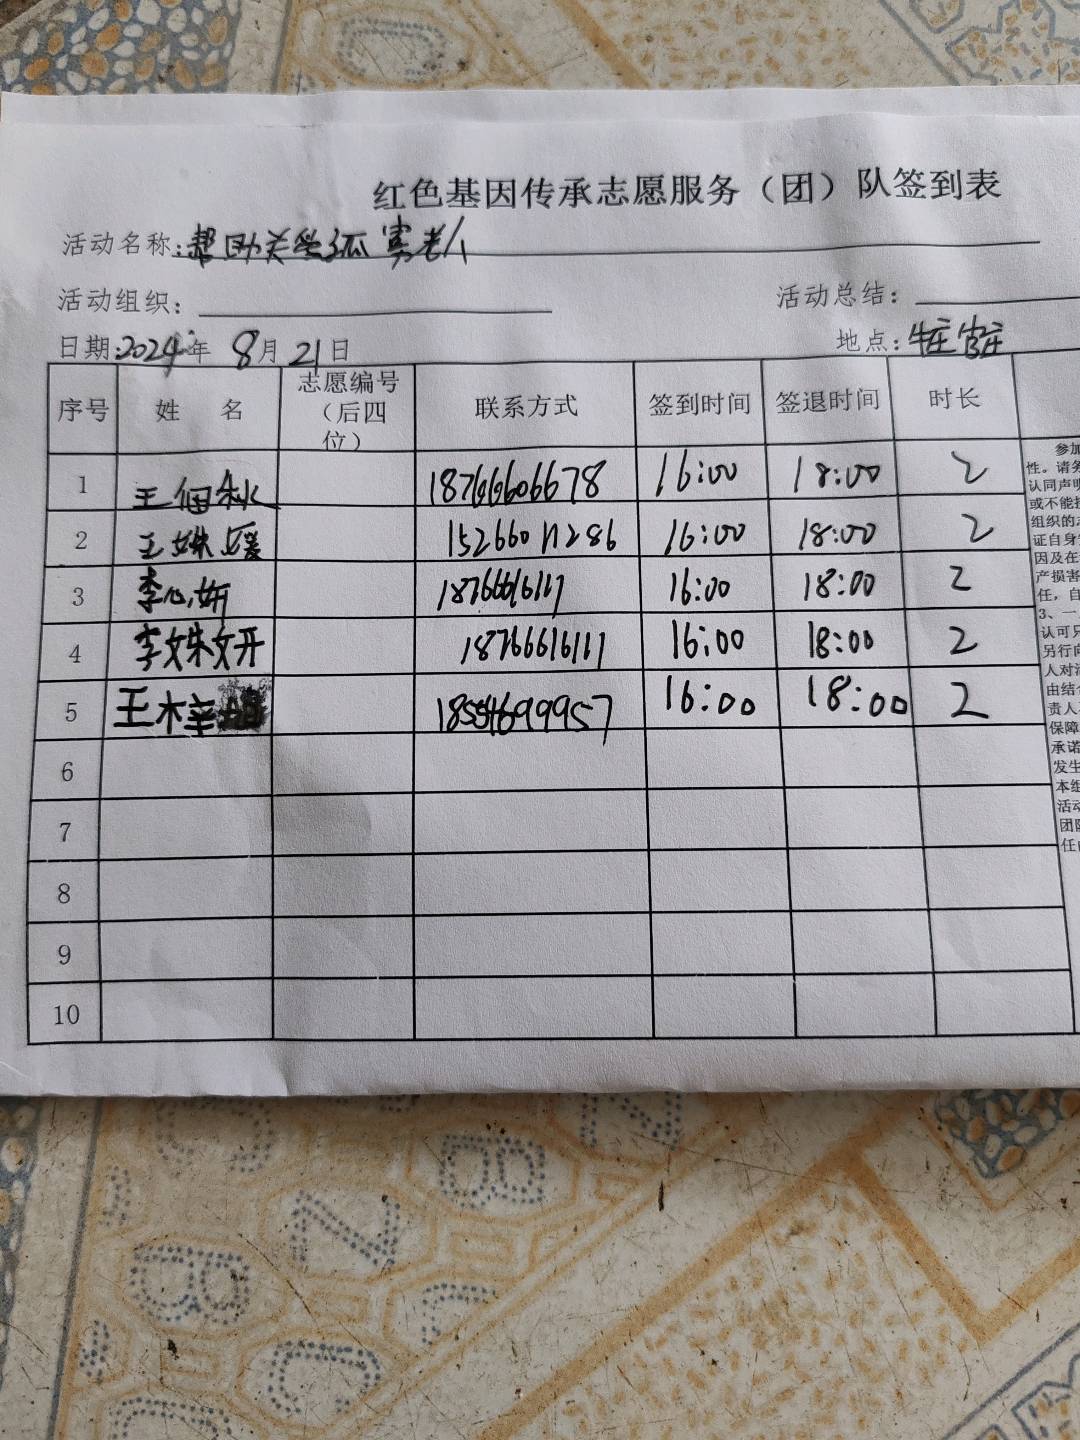 红色基因传承志愿服务（团）队签到表
活动名称：帮助关爱孤寡老人
活动组织：
活动总结：
日期：2024年 8月 21日
地点：
序号 姓 名 志愿编号（后四位） 联系方式 签到时间 签退时间 时长
1 王佃 18766606678 16:00 18:00 2
2 王姝媛 15266011286 16:00 18:00 2
3 李心妍 18766616117 16:00 18:00 2
4 李姝妍 18766616111 16:00 18:00 2
5 王梓 18554699957 16:00 18:00 2
6
7
8
9
10
参加
性。请务
认同声明
或不能挂
组织的
证自身
因及在
产损害
任，自
3、一
认可只
另行向
人对
由结
贵人
保障
承诺
发生
本组
活动
团队
任由